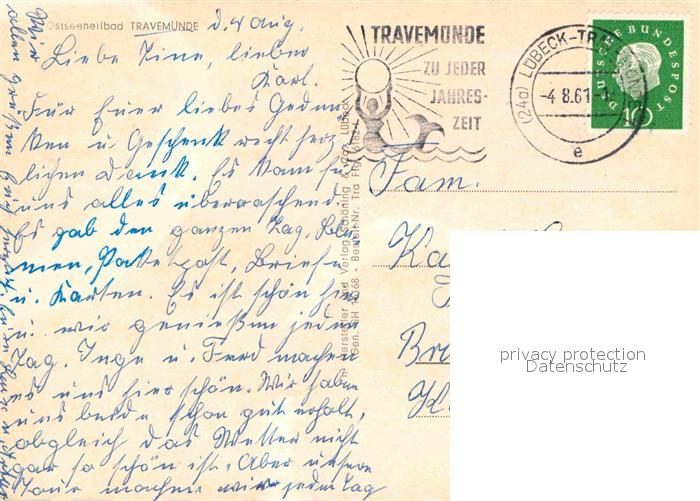 Ostseeheilbad TRAVEMÜNDE
d. 4 Aug.
Liebe Tine, lieber
Karl.
Für Euer liebes Geden-
ken u Geschenk recht herz-
lichen Dank. Es kam für
uns alles überraschend.
Es gab den ganzen Tag Blu-
men, Paketpost, Briefe
u. Karten. Es ist schön hier
u. wir genießen jeden
Tag. Inge u. Ferd machen
es uns hier schön. Wir haben
uns beide schon gut erholt,
obgleich das Wetter nicht
gar so schön ist. Aber unsere
Tour machen wir jeden Tag
Wir
allen grüßen Euch herzlichst
TRAVEMÜNDE
ZU JEDER
JAHRES-
ZEIT
(24a) LÜBECK-TRAVEMÜNDE
-4.8.61-
e
DEUTSCHE BUNDESPOST
10
Hersteller und Verlag Schöning & Co., Lübeck
Gen. SH 18/68 - Bestell-Nr. Tra
Fam.
Ka
Br
K
privacy protection
Datenschutz